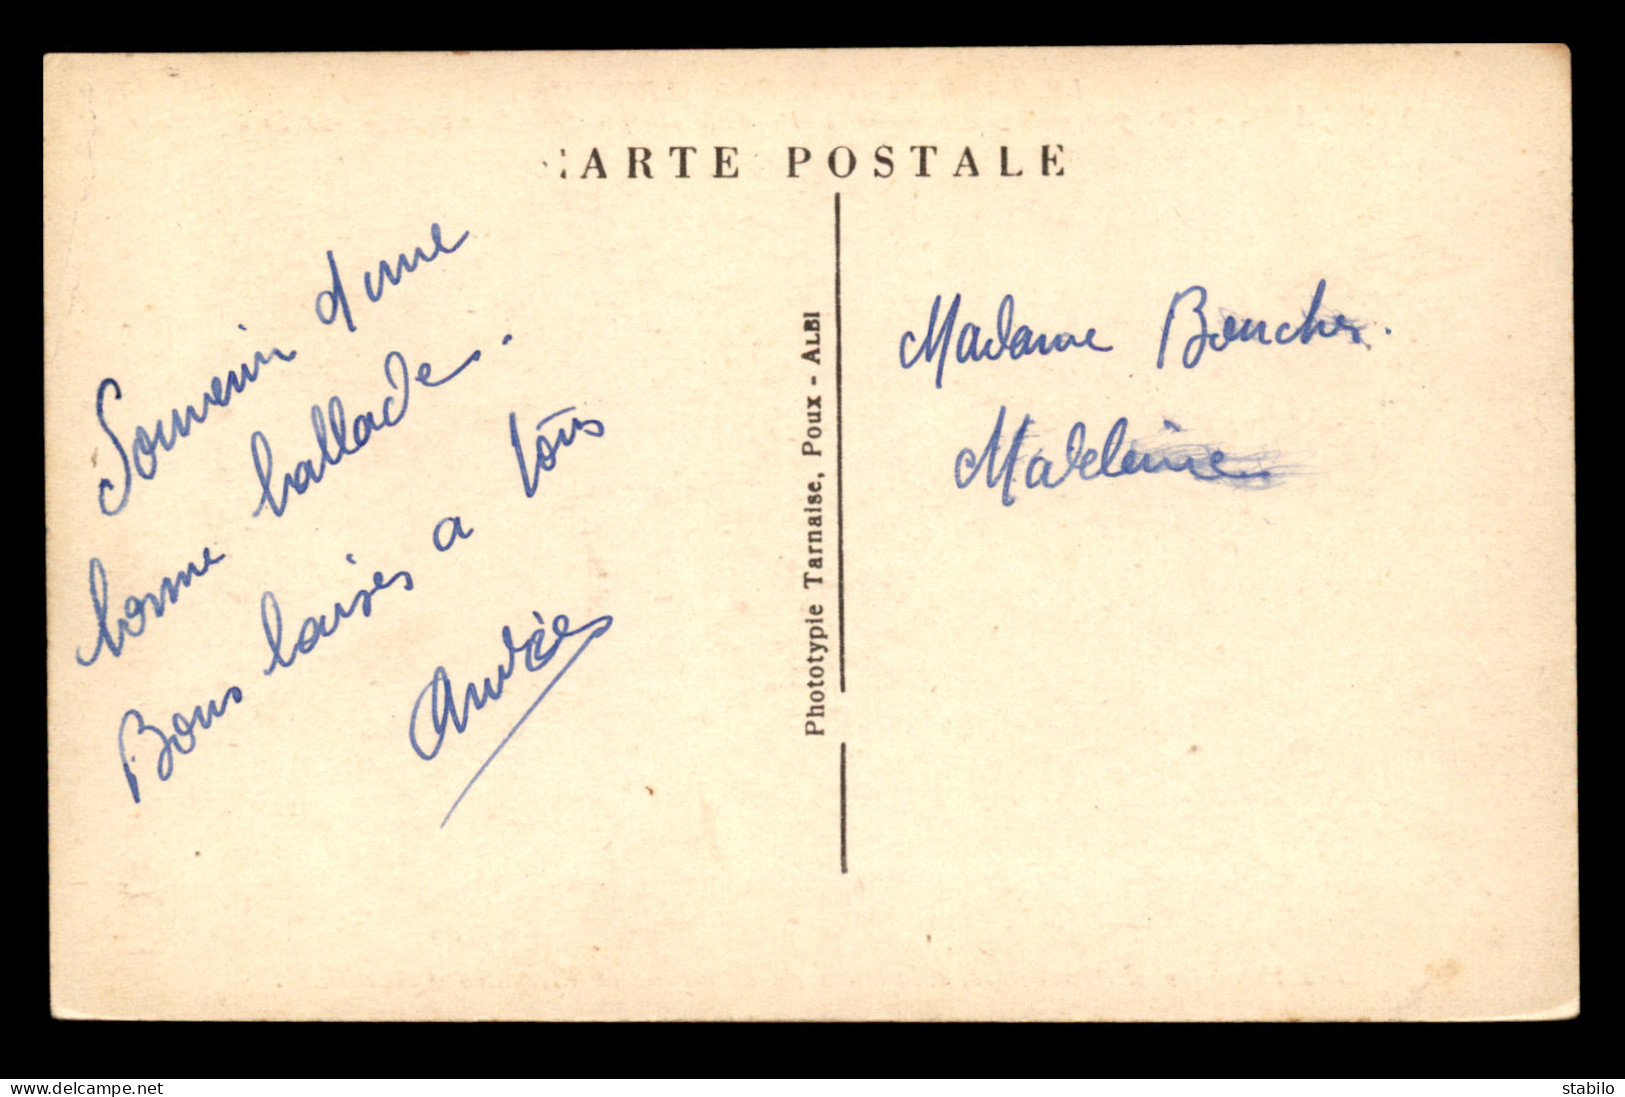 CARTE POSTALE
Souvenir d'une
bonne ballade.
Bons baises a tous
Phototypie Tarnaise, Poux - ALBI
Madame Boucher.
Madeleine
www.delcampe.net
stabilo